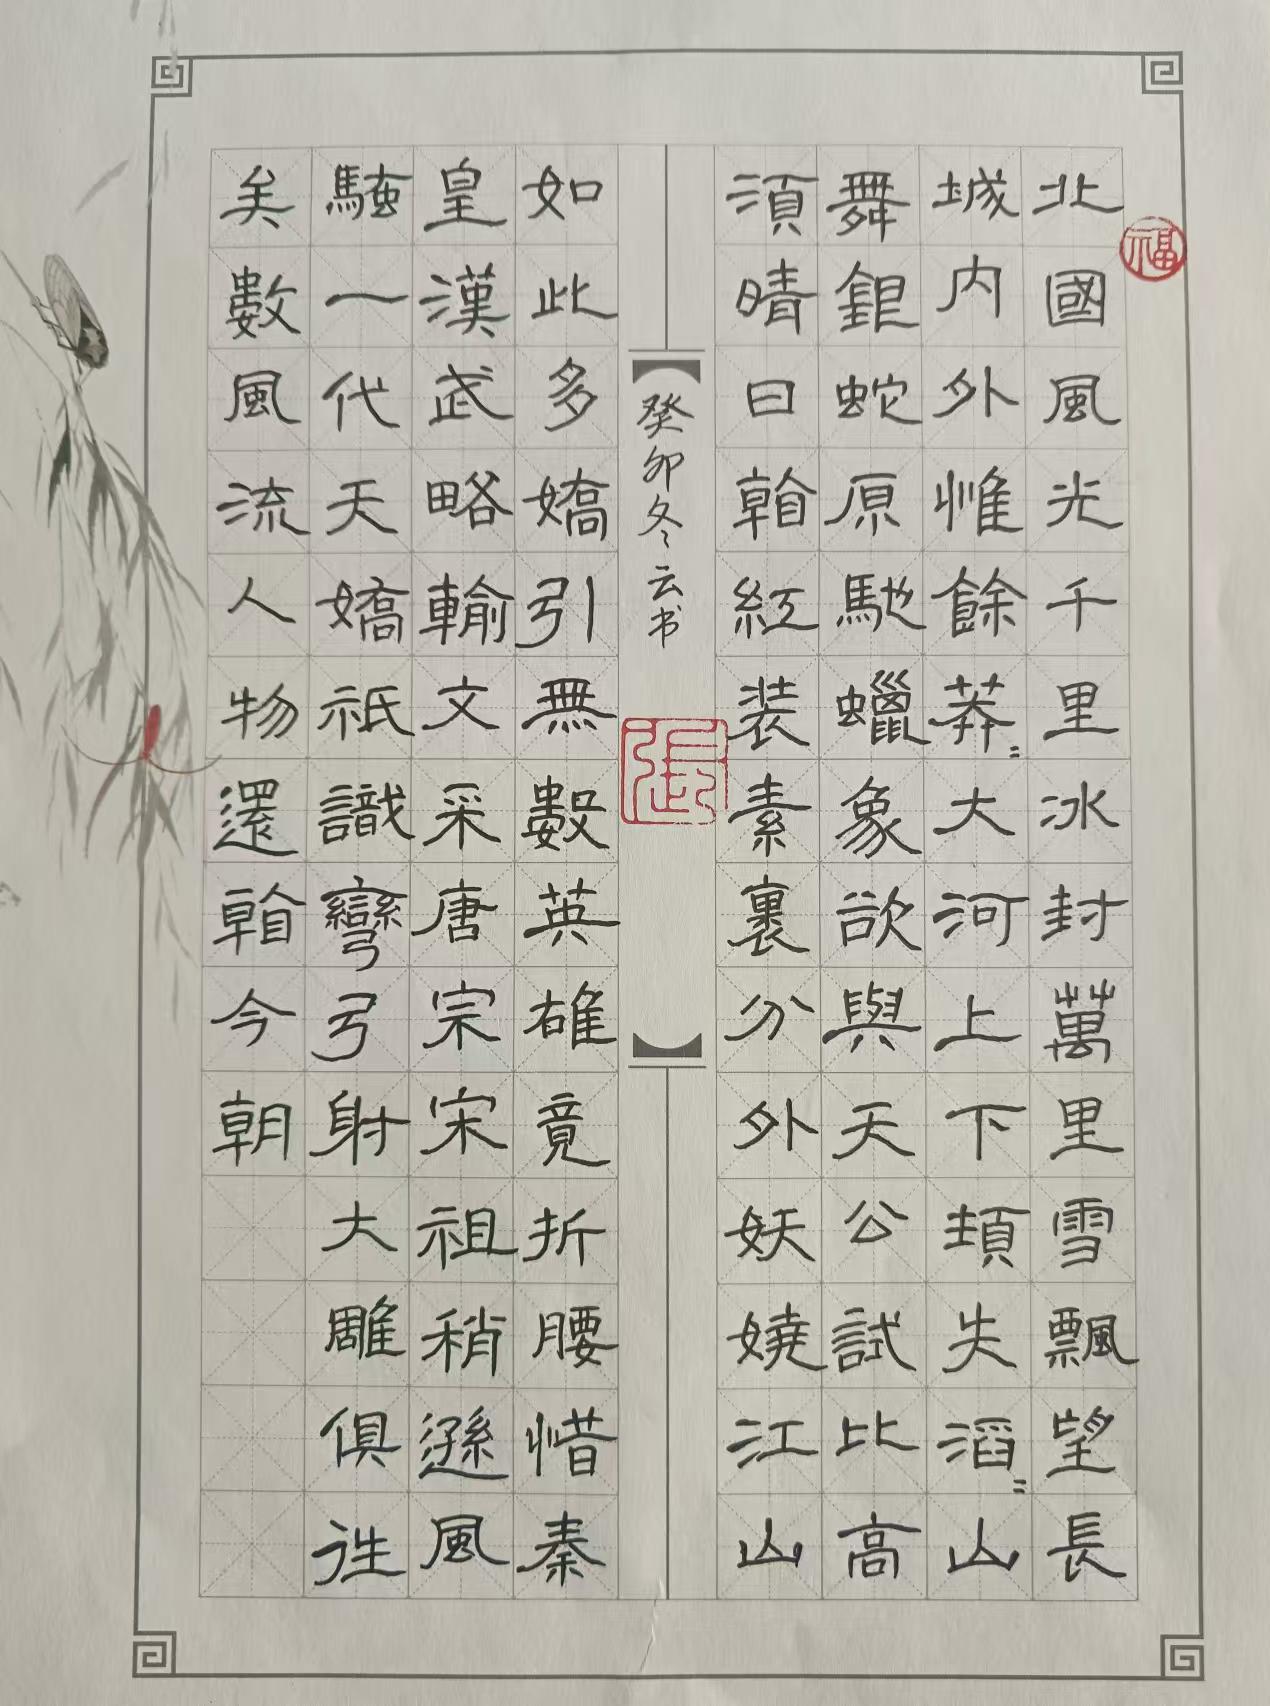 福
北國風光千里冰封萬里雪飄望長
城内外惟餘莽〻大河上下頓失滔〻山
舞銀蛇原馳蠟象欲與天公試比高
須晴日看紅装素裹分外妖嬈江山
如此多嬌引無數英雄竟折腰惜秦
皇漢武略輸文采唐宗宋祖稍遜風
騷一代天嬌祇識彎弓射大雕俱往
矣數風流人物還看今朝
癸卯冬云书